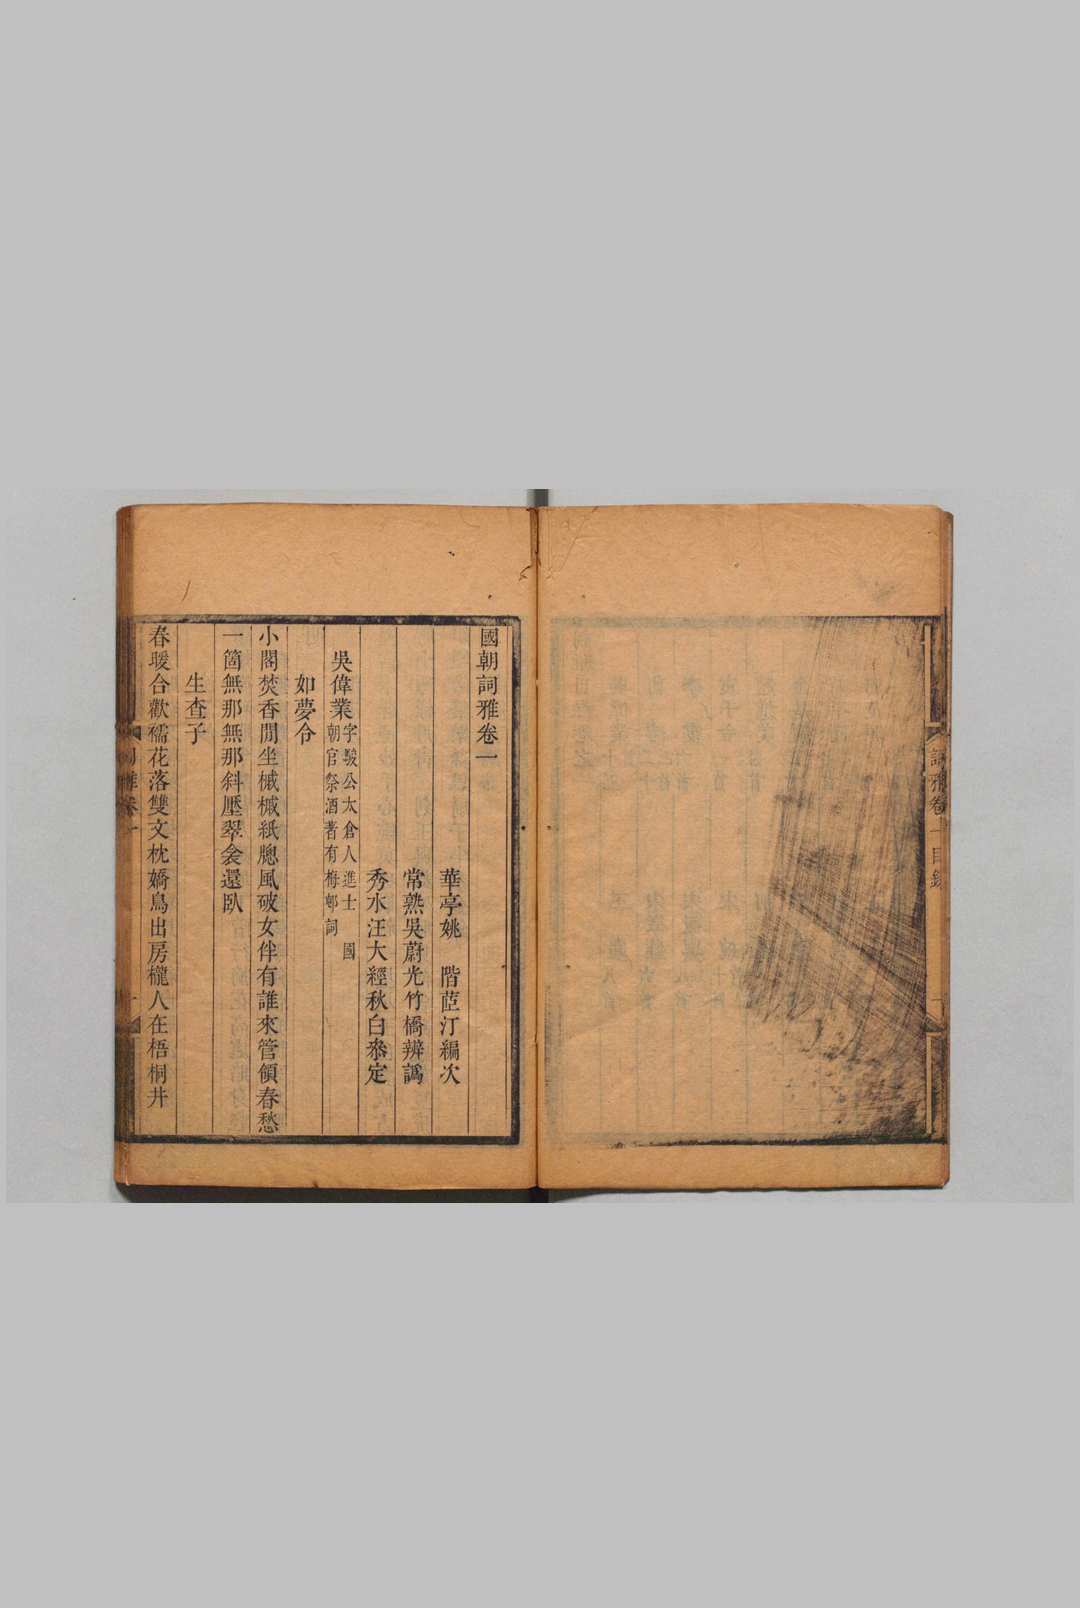 詞雅卷一目錄
國朝詞雅卷一
華亭姚　階茝汀編次
常熟吳蔚光竹橋辨譌
秀水汪大經秋白叅定
吳偉業字駿公太倉人進士　國
朝官祭酒著有梅邨詞
如夢令
小閣焚香閒坐槭槭紙牕風破女伴有誰來管領春愁
一箇無那無那斜壓翠衾還臥
生查子
春暖合歡襦花落雙文枕嬌鳥出房櫳人在梧桐井
詞雅卷一
一